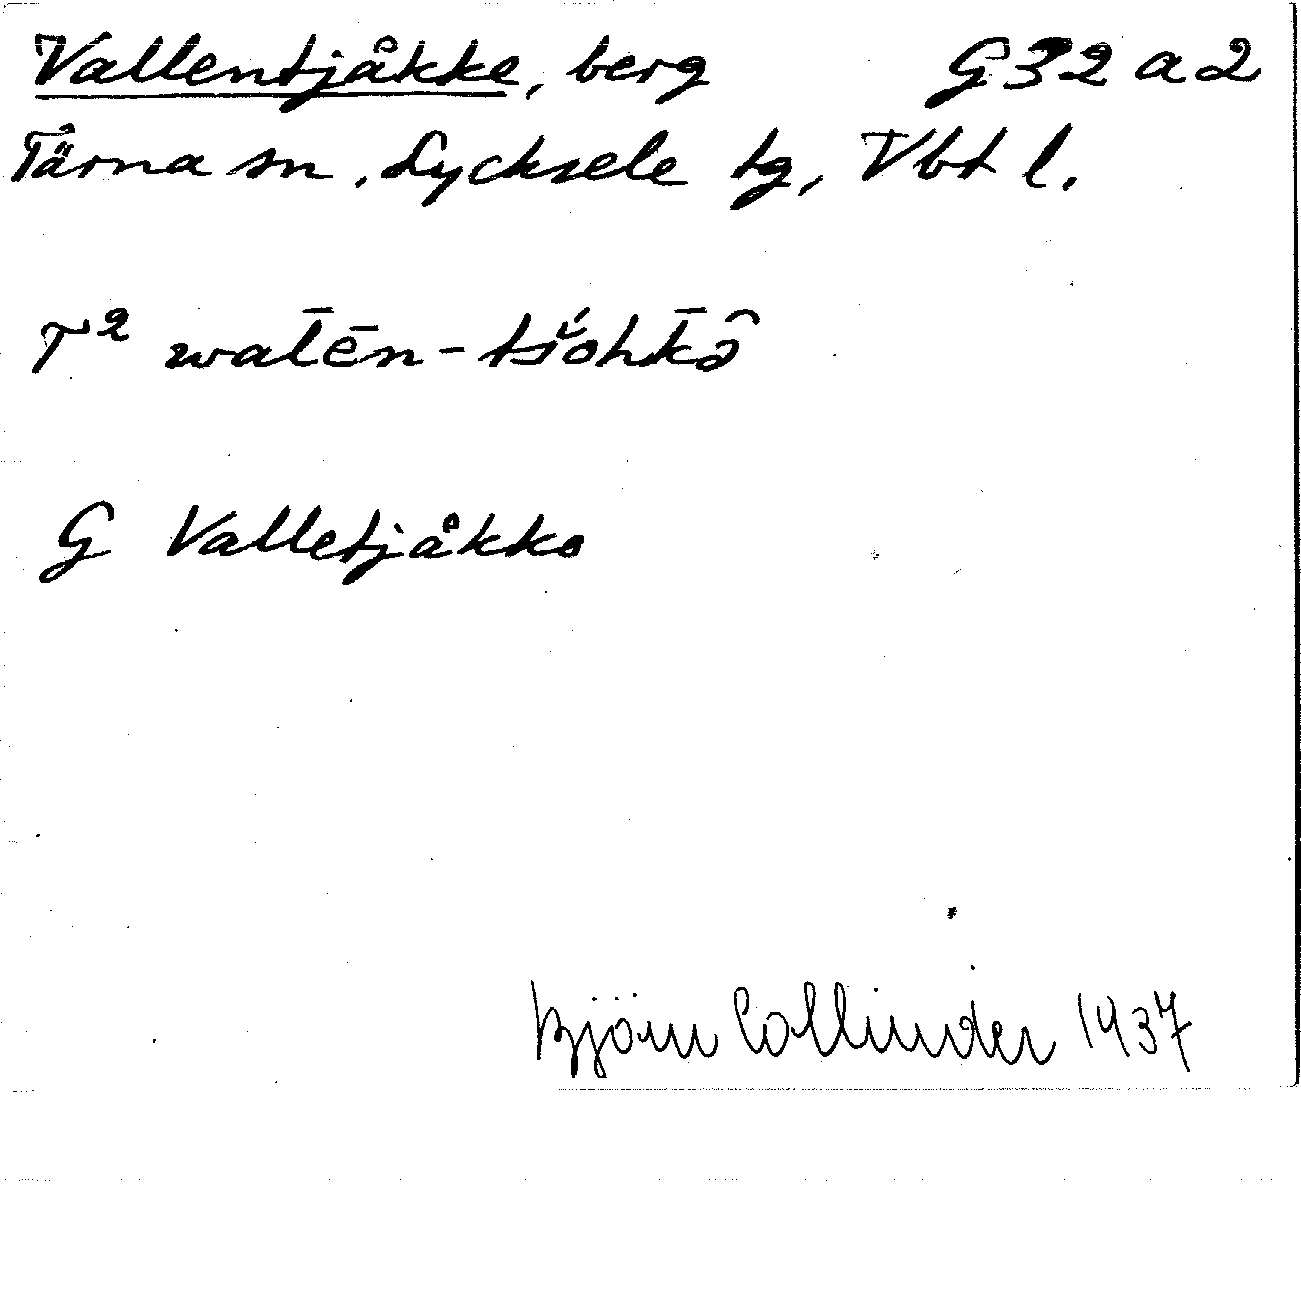 Vallentjåkke, berg G32 a 2
Tärna sn, Lycksele tg, Vbt l.
T² wal̄ēn-tšŏ́hk̄ə̑
G Valletjåkko
Björn Collinder 1937